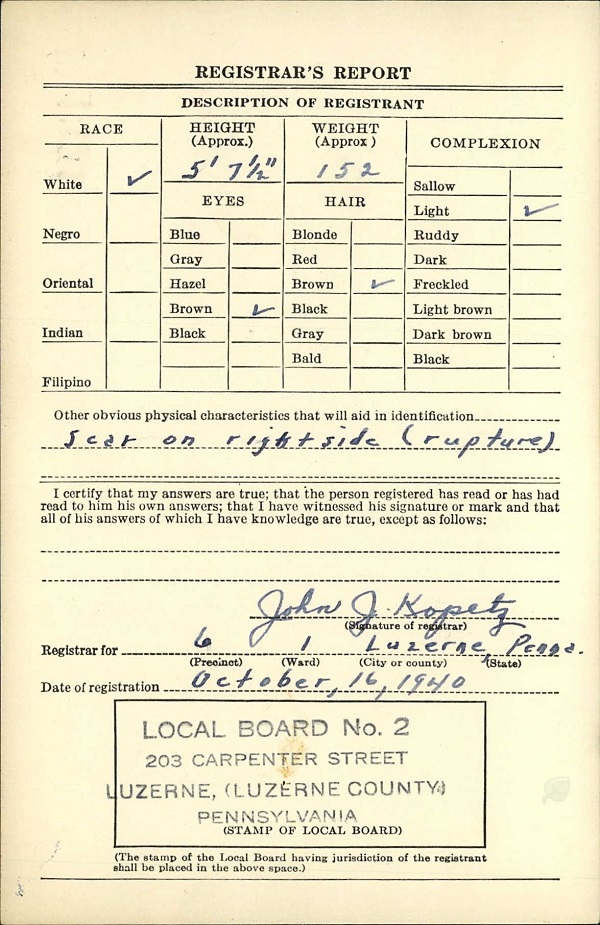 REGISTRAR'S REPORT
DESCRIPTION OF REGISTRANT
RACE
HEIGHT
(Approx.)
WEIGHT
(Approx.)
COMPLEXION
5' 7½"
152
White ✓
EYES
HAIR
Sallow
Light ✓
Negro
Blue
Blonde
Ruddy
Gray
Red
Dark
Oriental
Hazel
Brown ✓
Freckled
Brown ✓
Black
Light brown
Indian
Black
Gray
Dark brown
Bald
Black
Filipino
Other obvious physical characteristics that will aid in identification
Scar on right side (rupture)
I certify that my answers are true; that the person registered has read or has had
read to him his own answers; that I have witnessed his signature or mark and that
all of his answers of which I have knowledge are true, except as follows:
John J. Kopetz
(Signature of registrar)
Registrar for 6 1 Luzerne, Penna.
(Precinct) (Ward) (City or county) (State)
Date of registration October, 16, 1940
LOCAL BOARD No. 2
203 CARPENTER STREET
LUZERNE, (LUZERNE COUNTY)
PENNSYLVANIA
(STAMP OF LOCAL BOARD)
(The stamp of the Local Board having jurisdiction of the registrant
shall be placed in the above space.)